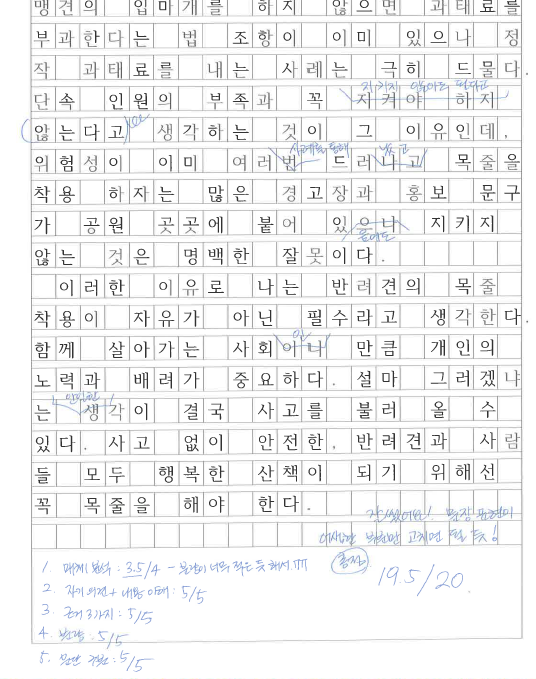 맹견의 입마개를 하지 않으면 과태료를
부과한다는 법 조항이 이미 있으나 정
작 과태료를 내는 사례는 극히 드물다.
지키지 않아도 된다고
단속 인원의 부족과 꼭 지켜야 하지
않는다고 생각하는 것이 그 이유인데,
사례를 통해 났고
위험성이 이미 여러번 드러나고 목줄을
착용 하자는 많은 경고장과 홍보 문구
가 공원 곳곳에 붙어 있으나 지키지
음에도
않는 것은 명백한 잘못이다.
이러한 이유로 나는 반려견의 목줄
착용이 자유가 아닌 필수라고 생각한다.
인
함께 살아가는 사회이니 만큼 개인의
노력과 배려가 중요하다. 설마 그러겠냐
안일한
는 생각이 결국 사고를 불러 올 수
있다. 사고 없이 안전한, 반려견과 사람
들 모두 행복한 산책이 되기 위해선
꼭 목줄을 해야 한다.
잘 썼어요! 문장 표현이
고치면 될 듯!
1. 3.5/4 - 분량이 너무 작은 듯 해서 ㅠㅠ
총점 19.5/20.
2. 자기 의견 + 내용 이해 : 5/5
3. 근거 3가지 : 5/5
4. 5/5
5. 문단 구분 : 5/5